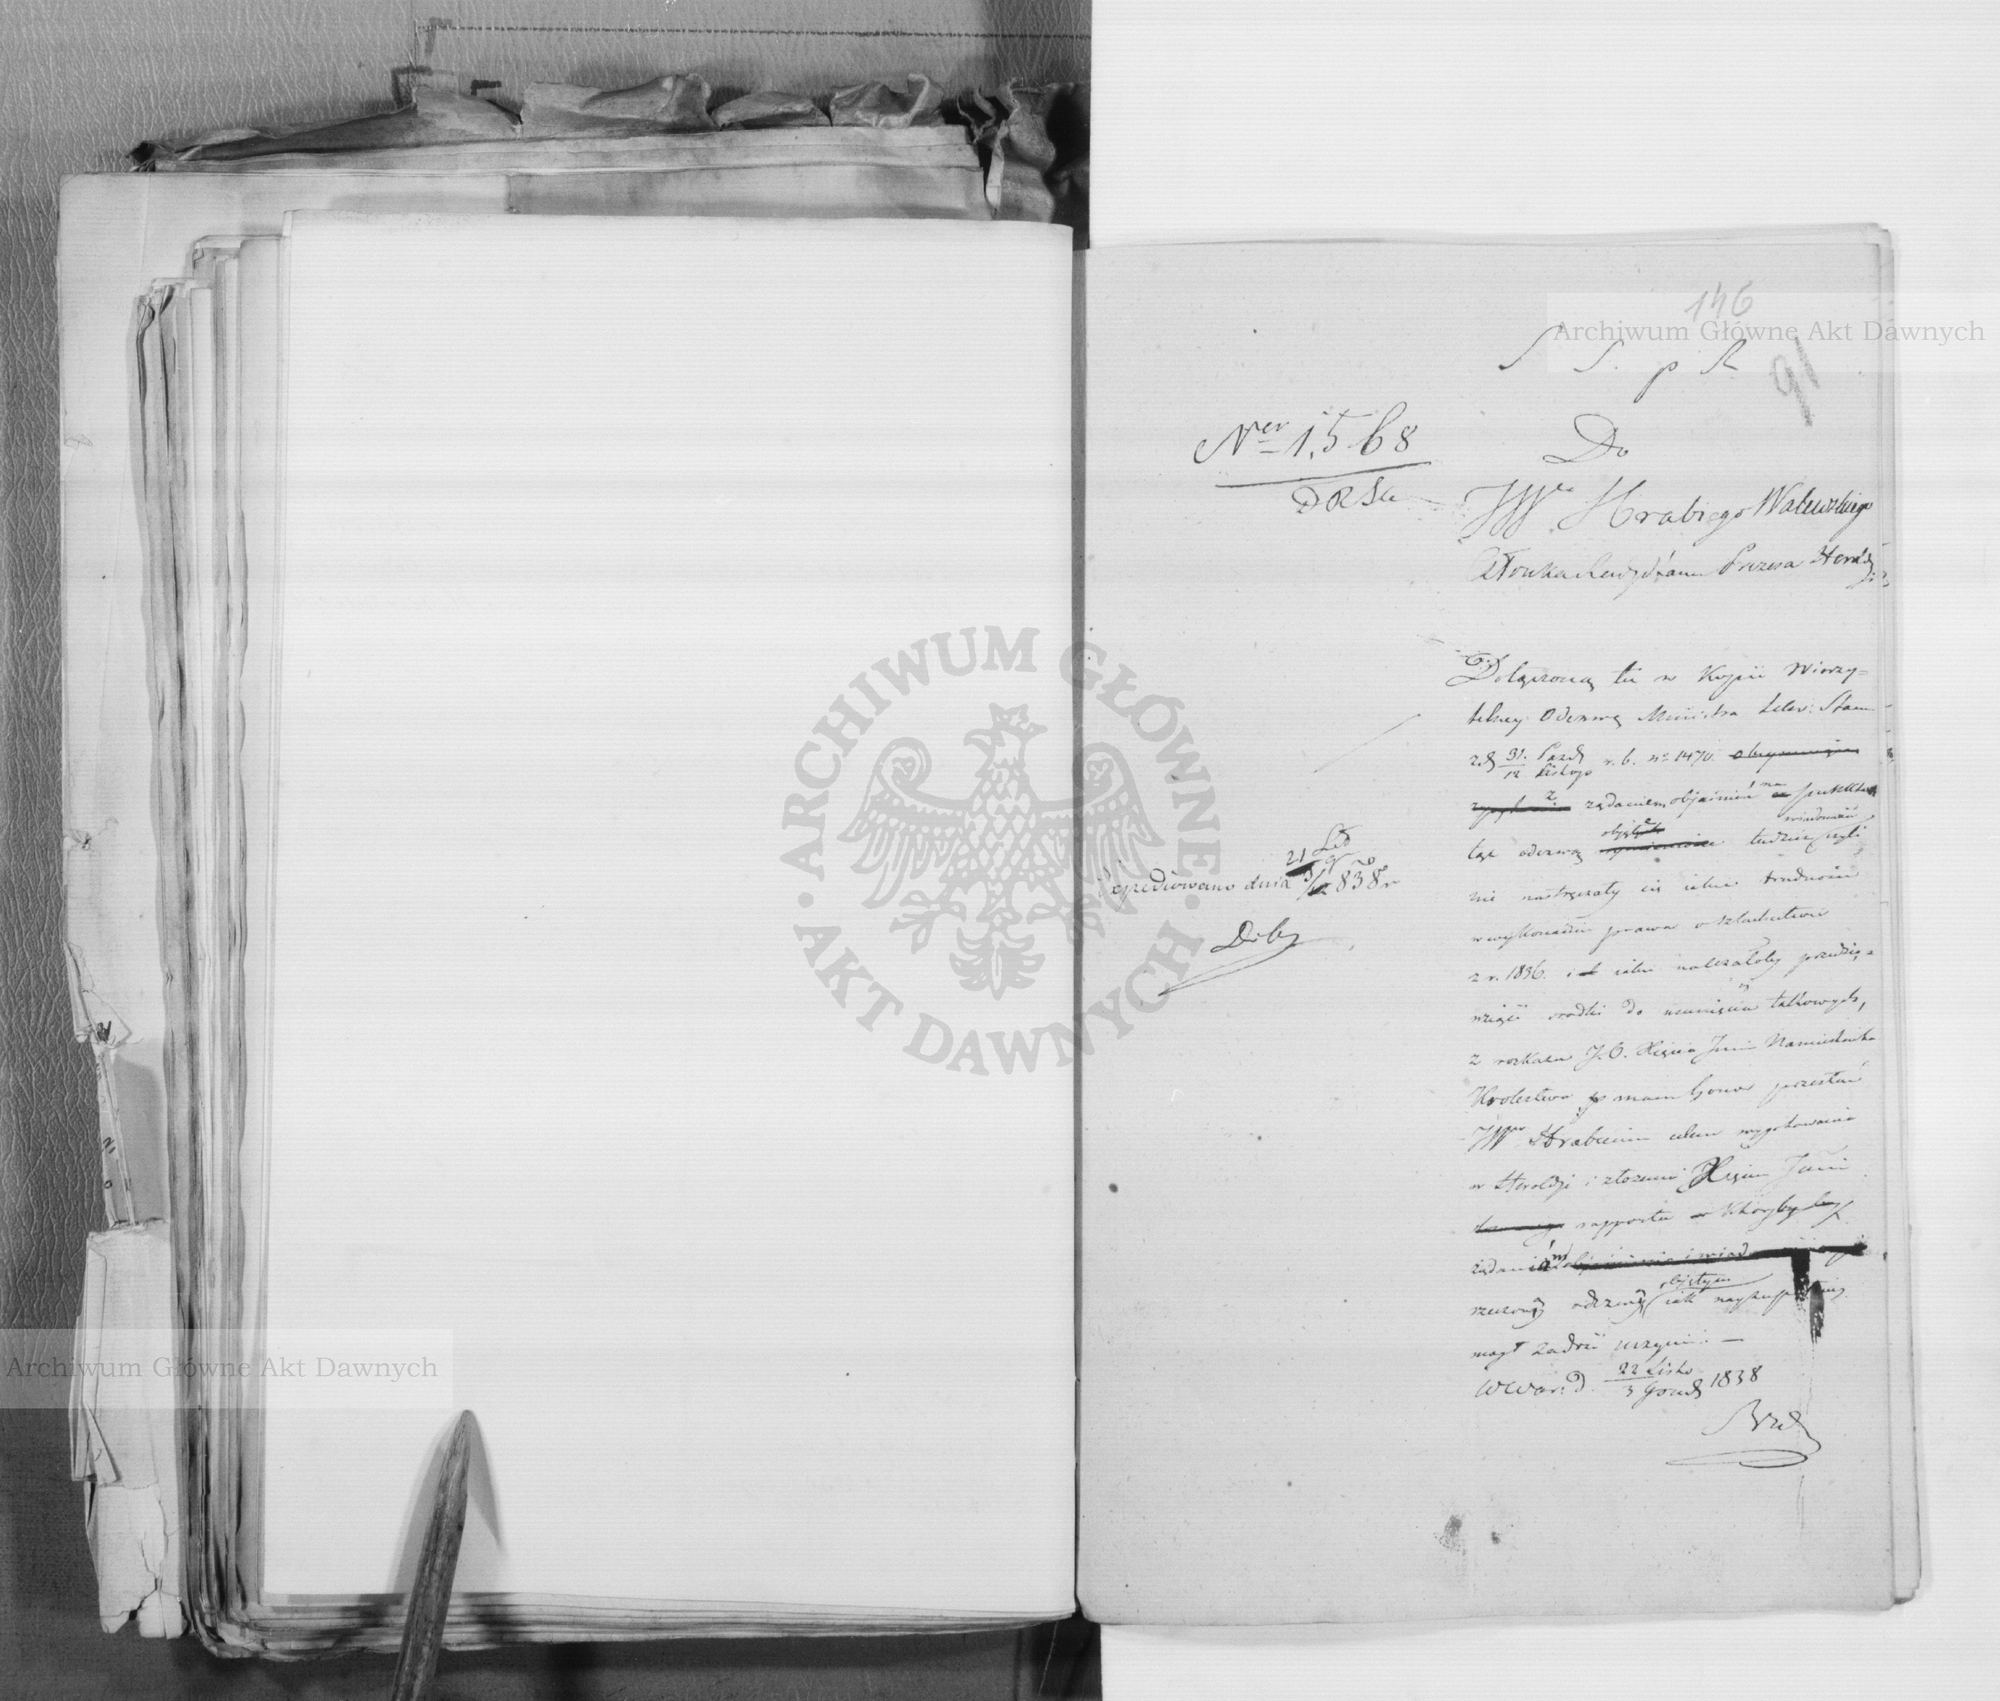 146
Archiwum Główne Akt Dawnych
S S. p R
91
Ner 1,568
Do
JWo Hrabiego Walewskiego
Członka Prezesa Heroldji
Dołączoną tu w Kopii Wierzy-
telney Odezwę Ministra Sekr: Stanu
z d 31. Paźd / 12 Listop r. b. nº 1470.
z żądaniem objaśnień na
tąż odezwą objęte tudzież wiadomości czyli
nie nastręczały się jakie trudności
w wykonaniu prawa o szlachectwie
z r. 1836. i jakie należałoby przedsię-
wziąść środki do usunięcia takowych,
z rozkazu J. O. Xięcia Jmci Namiestnika
Królestwa mam honor przesłać
JWmu Hrabiemu celem wygotowania
w Heroldji i złożenia Xięciu Jmci
rapportu któryby
żądaniom
rzeczoną odezwą objętym jak
mógł zadość uczynić. —
w War: d. 22 Listo / 3 Grud 1838
Expediowano dnia 21 Lis / 3/12 838 r
ARCHIWUM GŁÓWNE
AKT DAWNYCH
Archiwum Główne Akt Dawnych